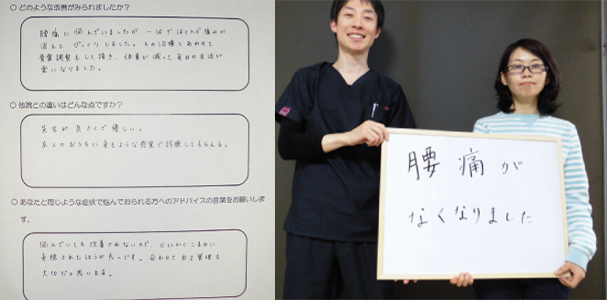 ○ どのような改善がみられましたか？
腰痛に悩んでいましたが 一回でほとんど痛みが
消えて びっくりしました。その治療とあわせて
栄養調整もして頂き、体重が減って毎日の生活が
楽になりました。
○ 他院との違いはどんな点ですか？
先生が気さくで優しい。
友人のおうちに来るような感覚で診療してもらえる。
○ あなたと同じような症状で悩んでおられる方へのアドバイスの言葉をお願いしま
す。
悩んでいても改善されないので、とにかくこまめに
来院されたほうが良いです。合わせて自己管理も
大切だと思います。
腰痛が
なくなりました